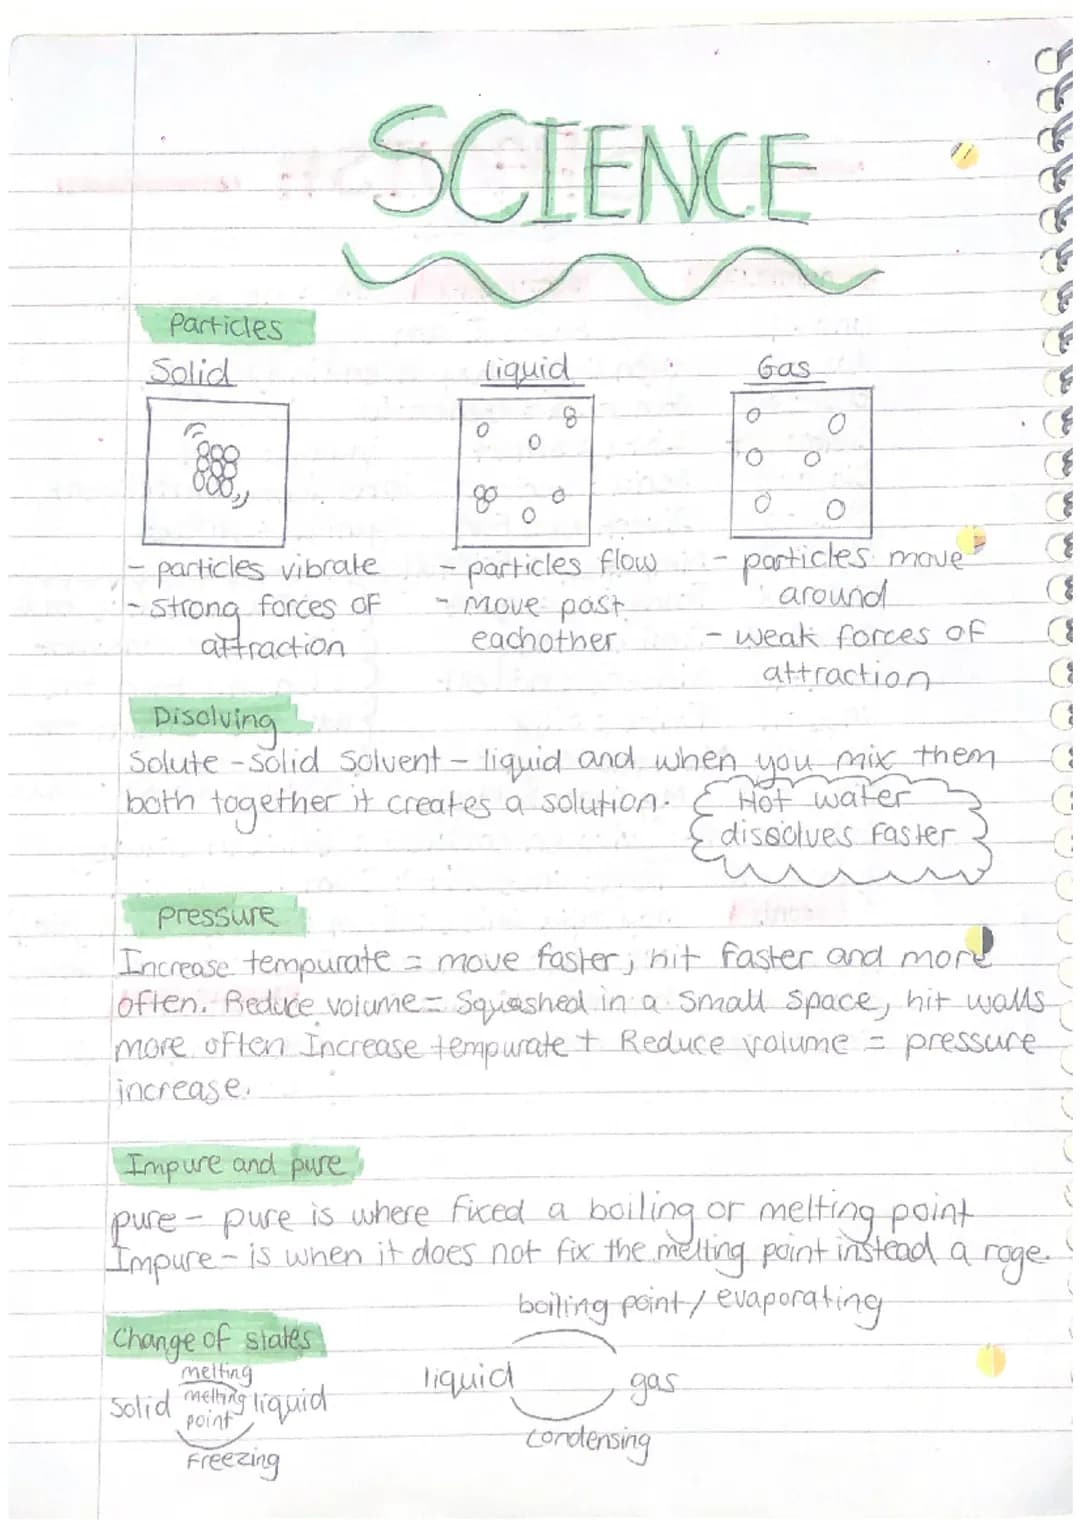 SCIENCE
Particles
Solid
liquid
Gas
- particles vibrate
- strong forces of
attraction
- particles flow
- Move past
eachother
- particles move
around
- weak forces of
attraction
Disolving
Solute - Solid Solvent - liquid and when you mix them
both together it creates a solution.
Hot water
dissolves faster
pressure
Increase tempurate = move faster, hit faster and more
often. Reduce volume = Squashed in a small space, hit walls
more often Increase tempurate + Reduce volume = pressure
increase.
Impure and pure
pure - pure is where fixed a boiling or melting point
Impure - is when it does not fix the melting point instead a rage.
Change of states
melting
Solid melting liquid
point
Freezing
boiling point / evaporating
liquid gas
Condensing